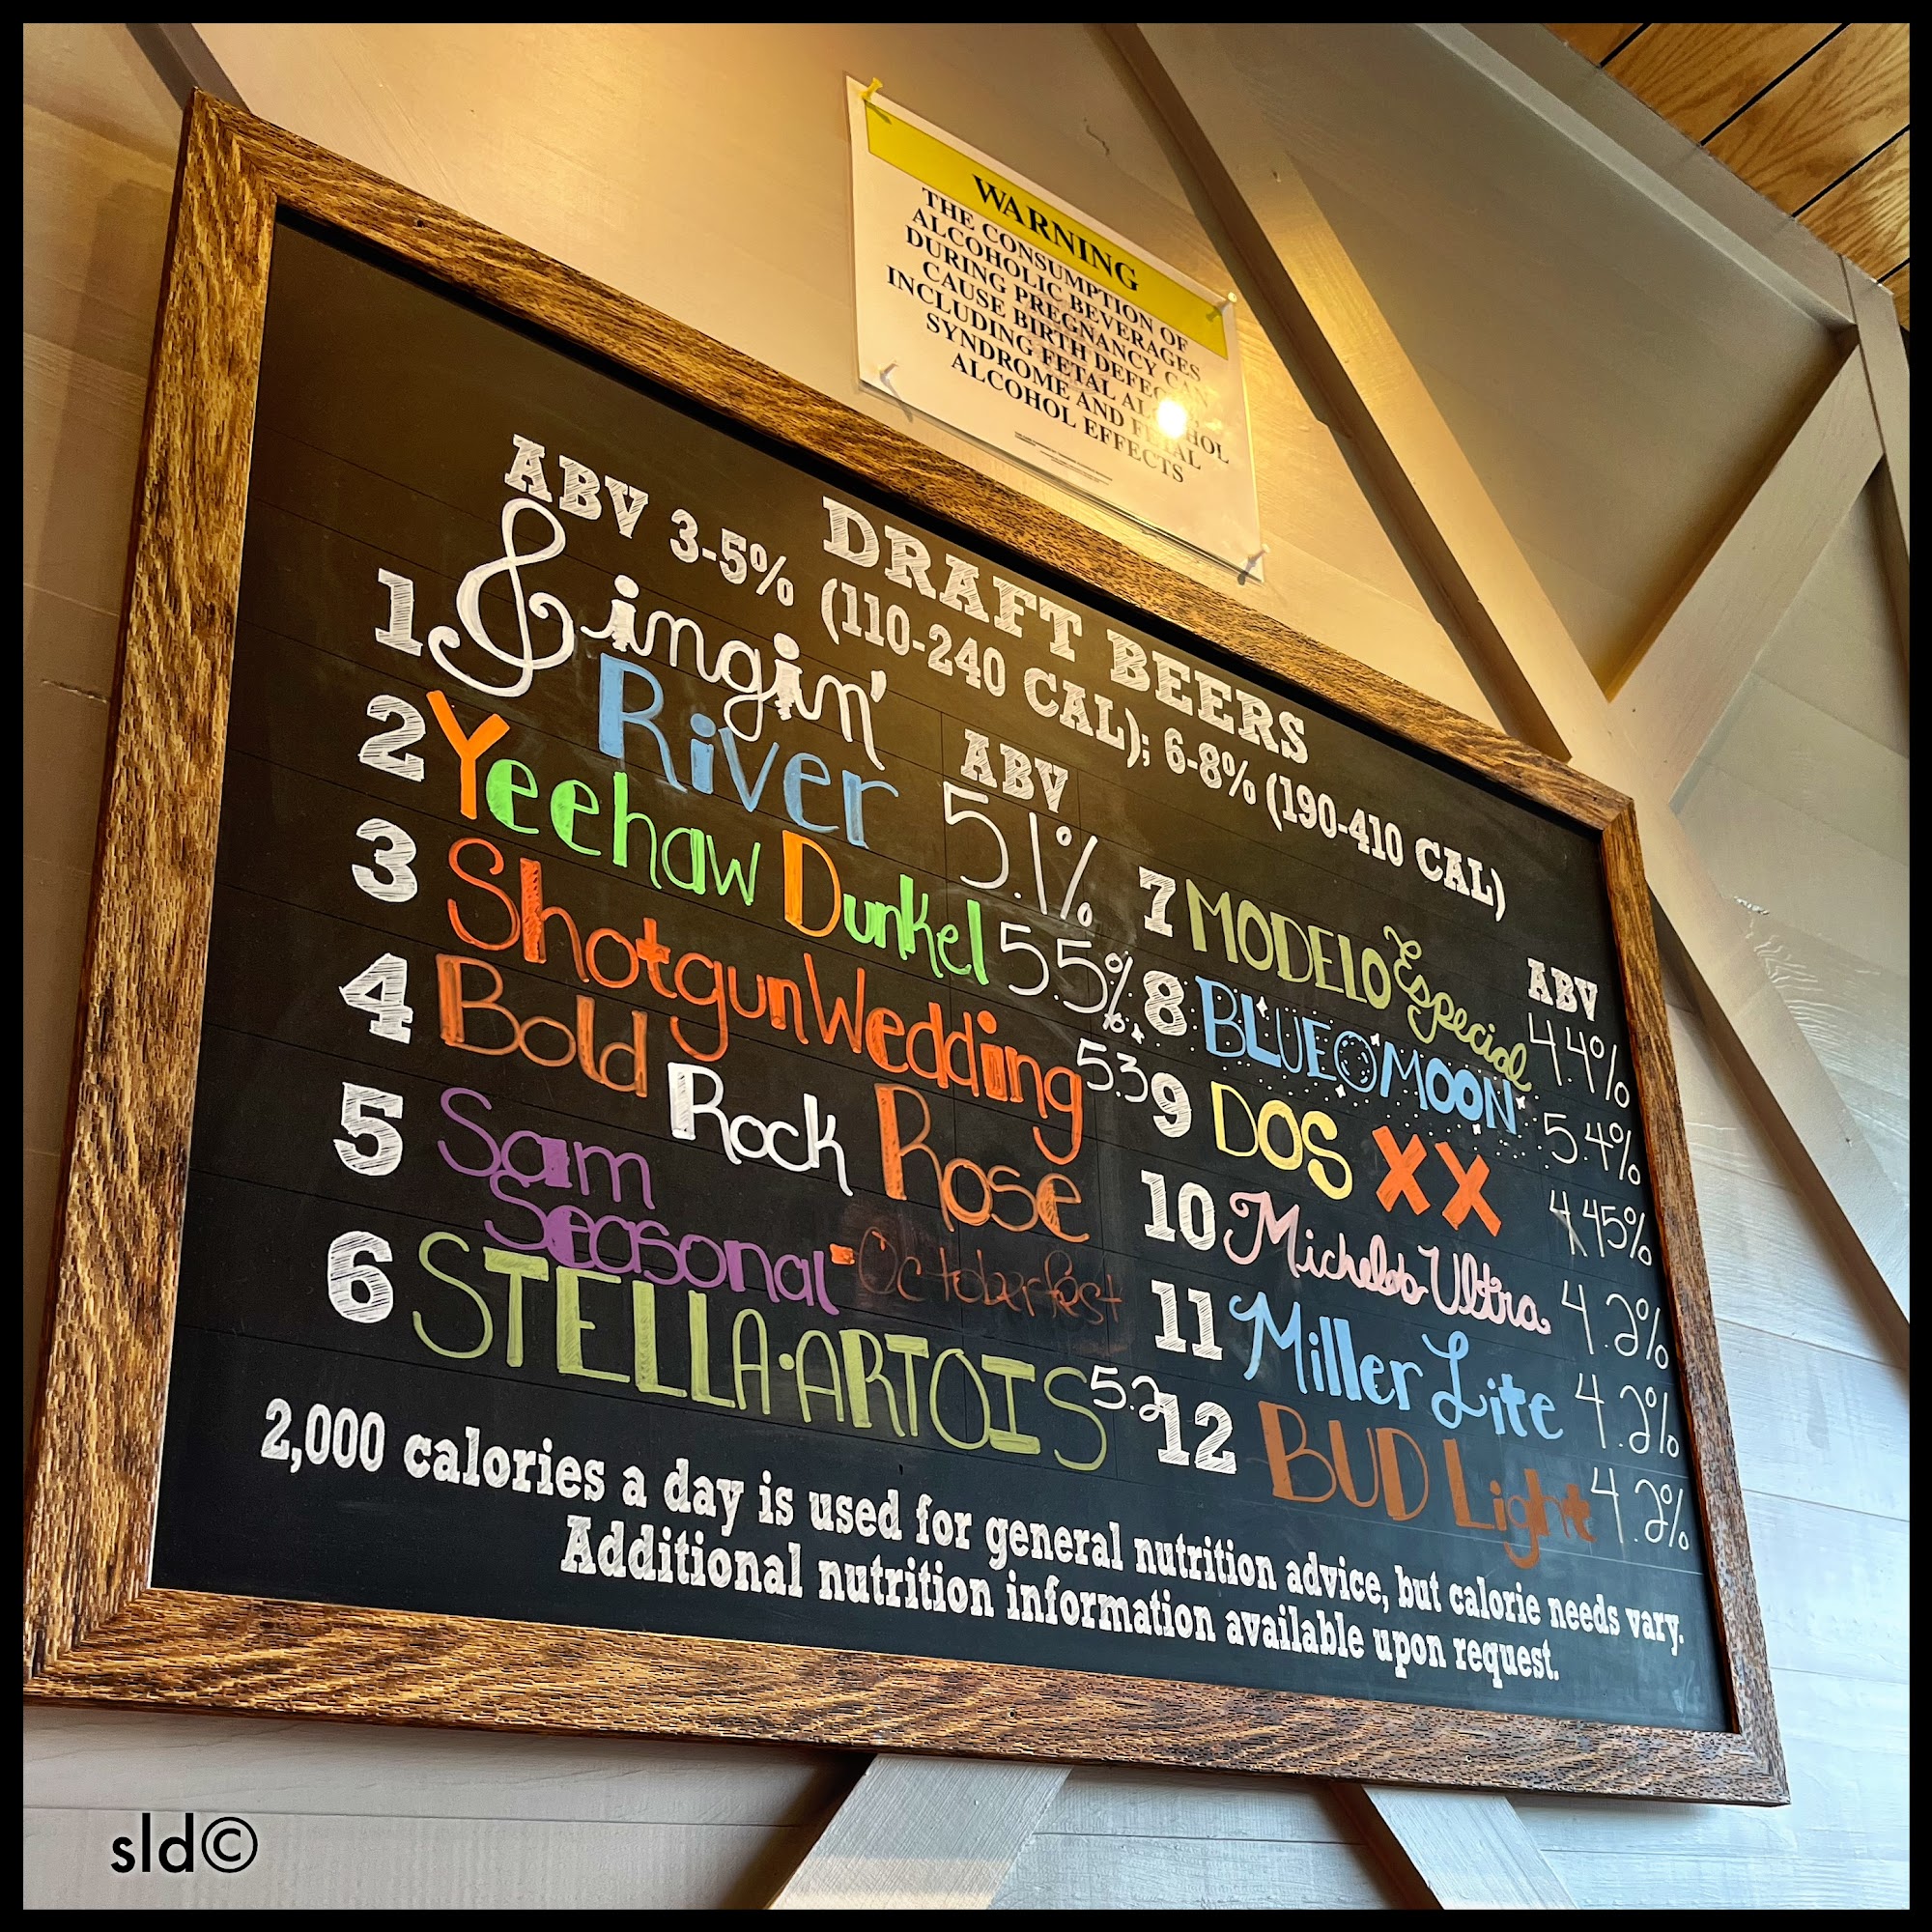 WARNING
THE CONSUMPTION OF
ALCOHOLIC BEVERAGES
DURING PREGNANCY CAN
CAUSE BIRTH DEFECTS,
INCLUDING FETAL ALCOHOL
SYNDROME AND FETAL
ALCOHOL EFFECTS
DRAFT BEERS
ABV 3-5% (110-240 CAL); 6-8% (190-410 CAL)
ABV
1 Singin'
River 5.1%
2 Yeehaw Dunkel 5.5%
3 Shotgun Wedding 5.3
4 Bold Rock Rose
5 Sam
Seasonal - Octoberfest
6 STELLA·ARTOIS 5.2
ABV
7 MODELO Especial 4.4%
8 BLUE MOON 5.4%
9 DOS XX 4.45%
10 Michelob Ultra 4.2%
11 Miller Lite 4.2%
12 BUD Light 4.2%
2,000 calories a day is used for general nutrition advice, but calorie needs vary.
Additional nutrition information available upon request.
sld©